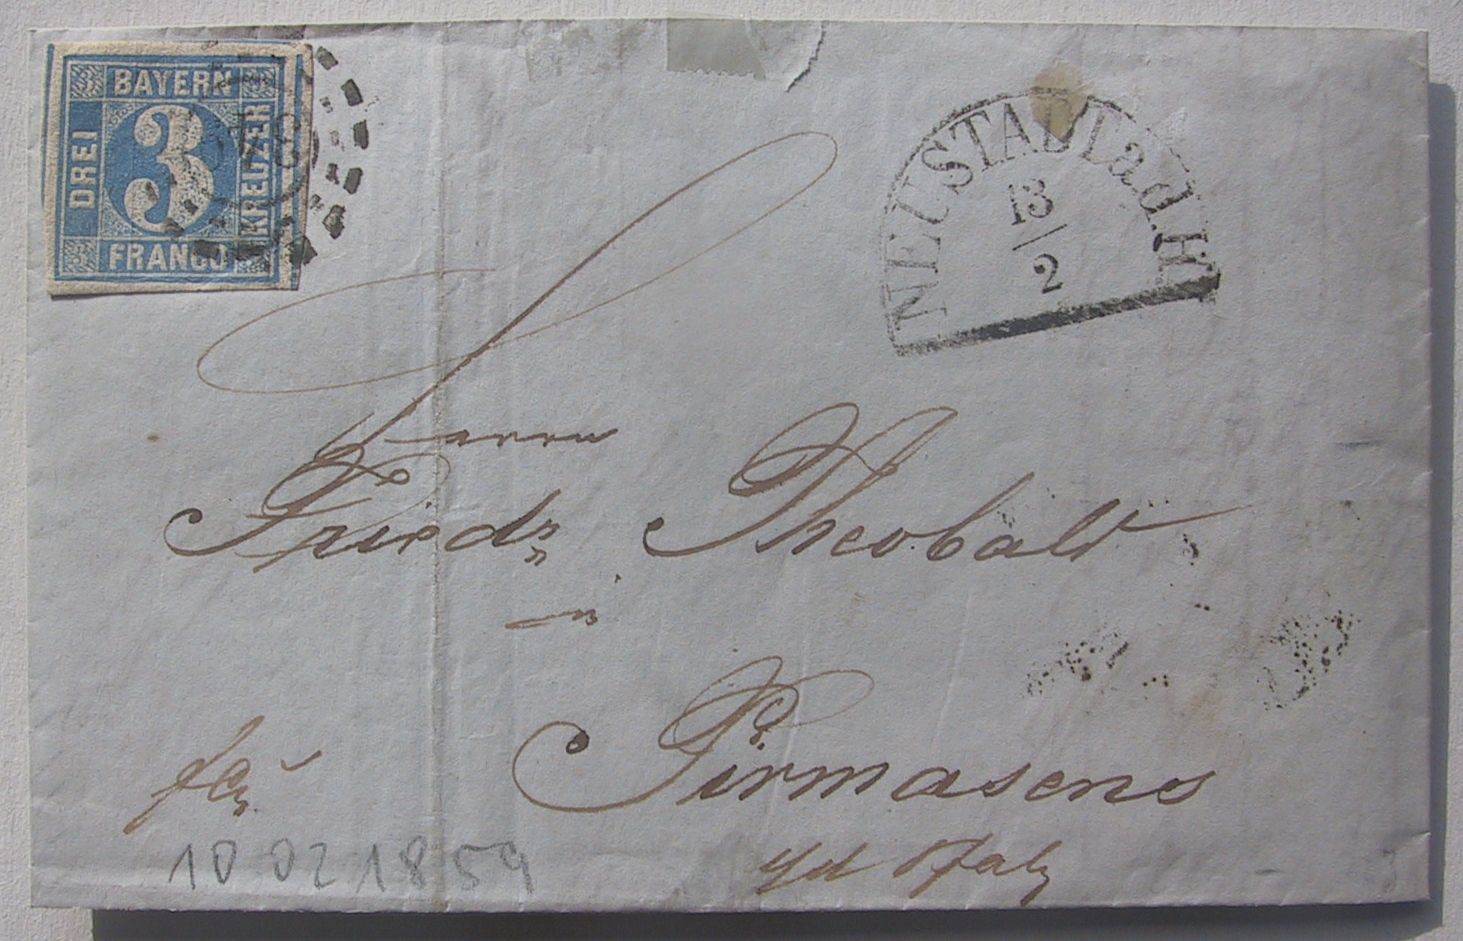 BAYERN
DREI
3
KREUZER
FRANCO
NEUSTADT a.d.H.
13
2
Herrn
Friedr Theobald
in
Pirmasens
Pfalz
10 02 1859